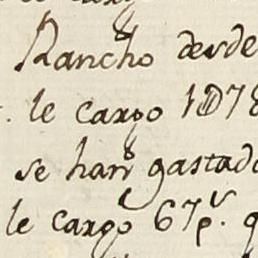 Rancho desde
le cargo 1D78
se han gastado
le cargo 67p.s